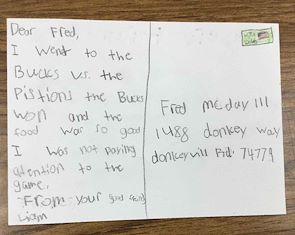 Dear Fred,
I went to the
Bucks v.s. the
Pistions the Bucks
won and the
food was so good
I was not paying
atention to the
game,
-From-your good friend
Liam
Fred mcday III
1488 donkey way
donkeyvill Rd. 74779